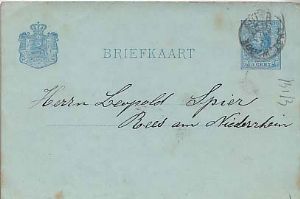 BRIEFKAART
Herrn Leopold Spier
Rees am Niederrhein